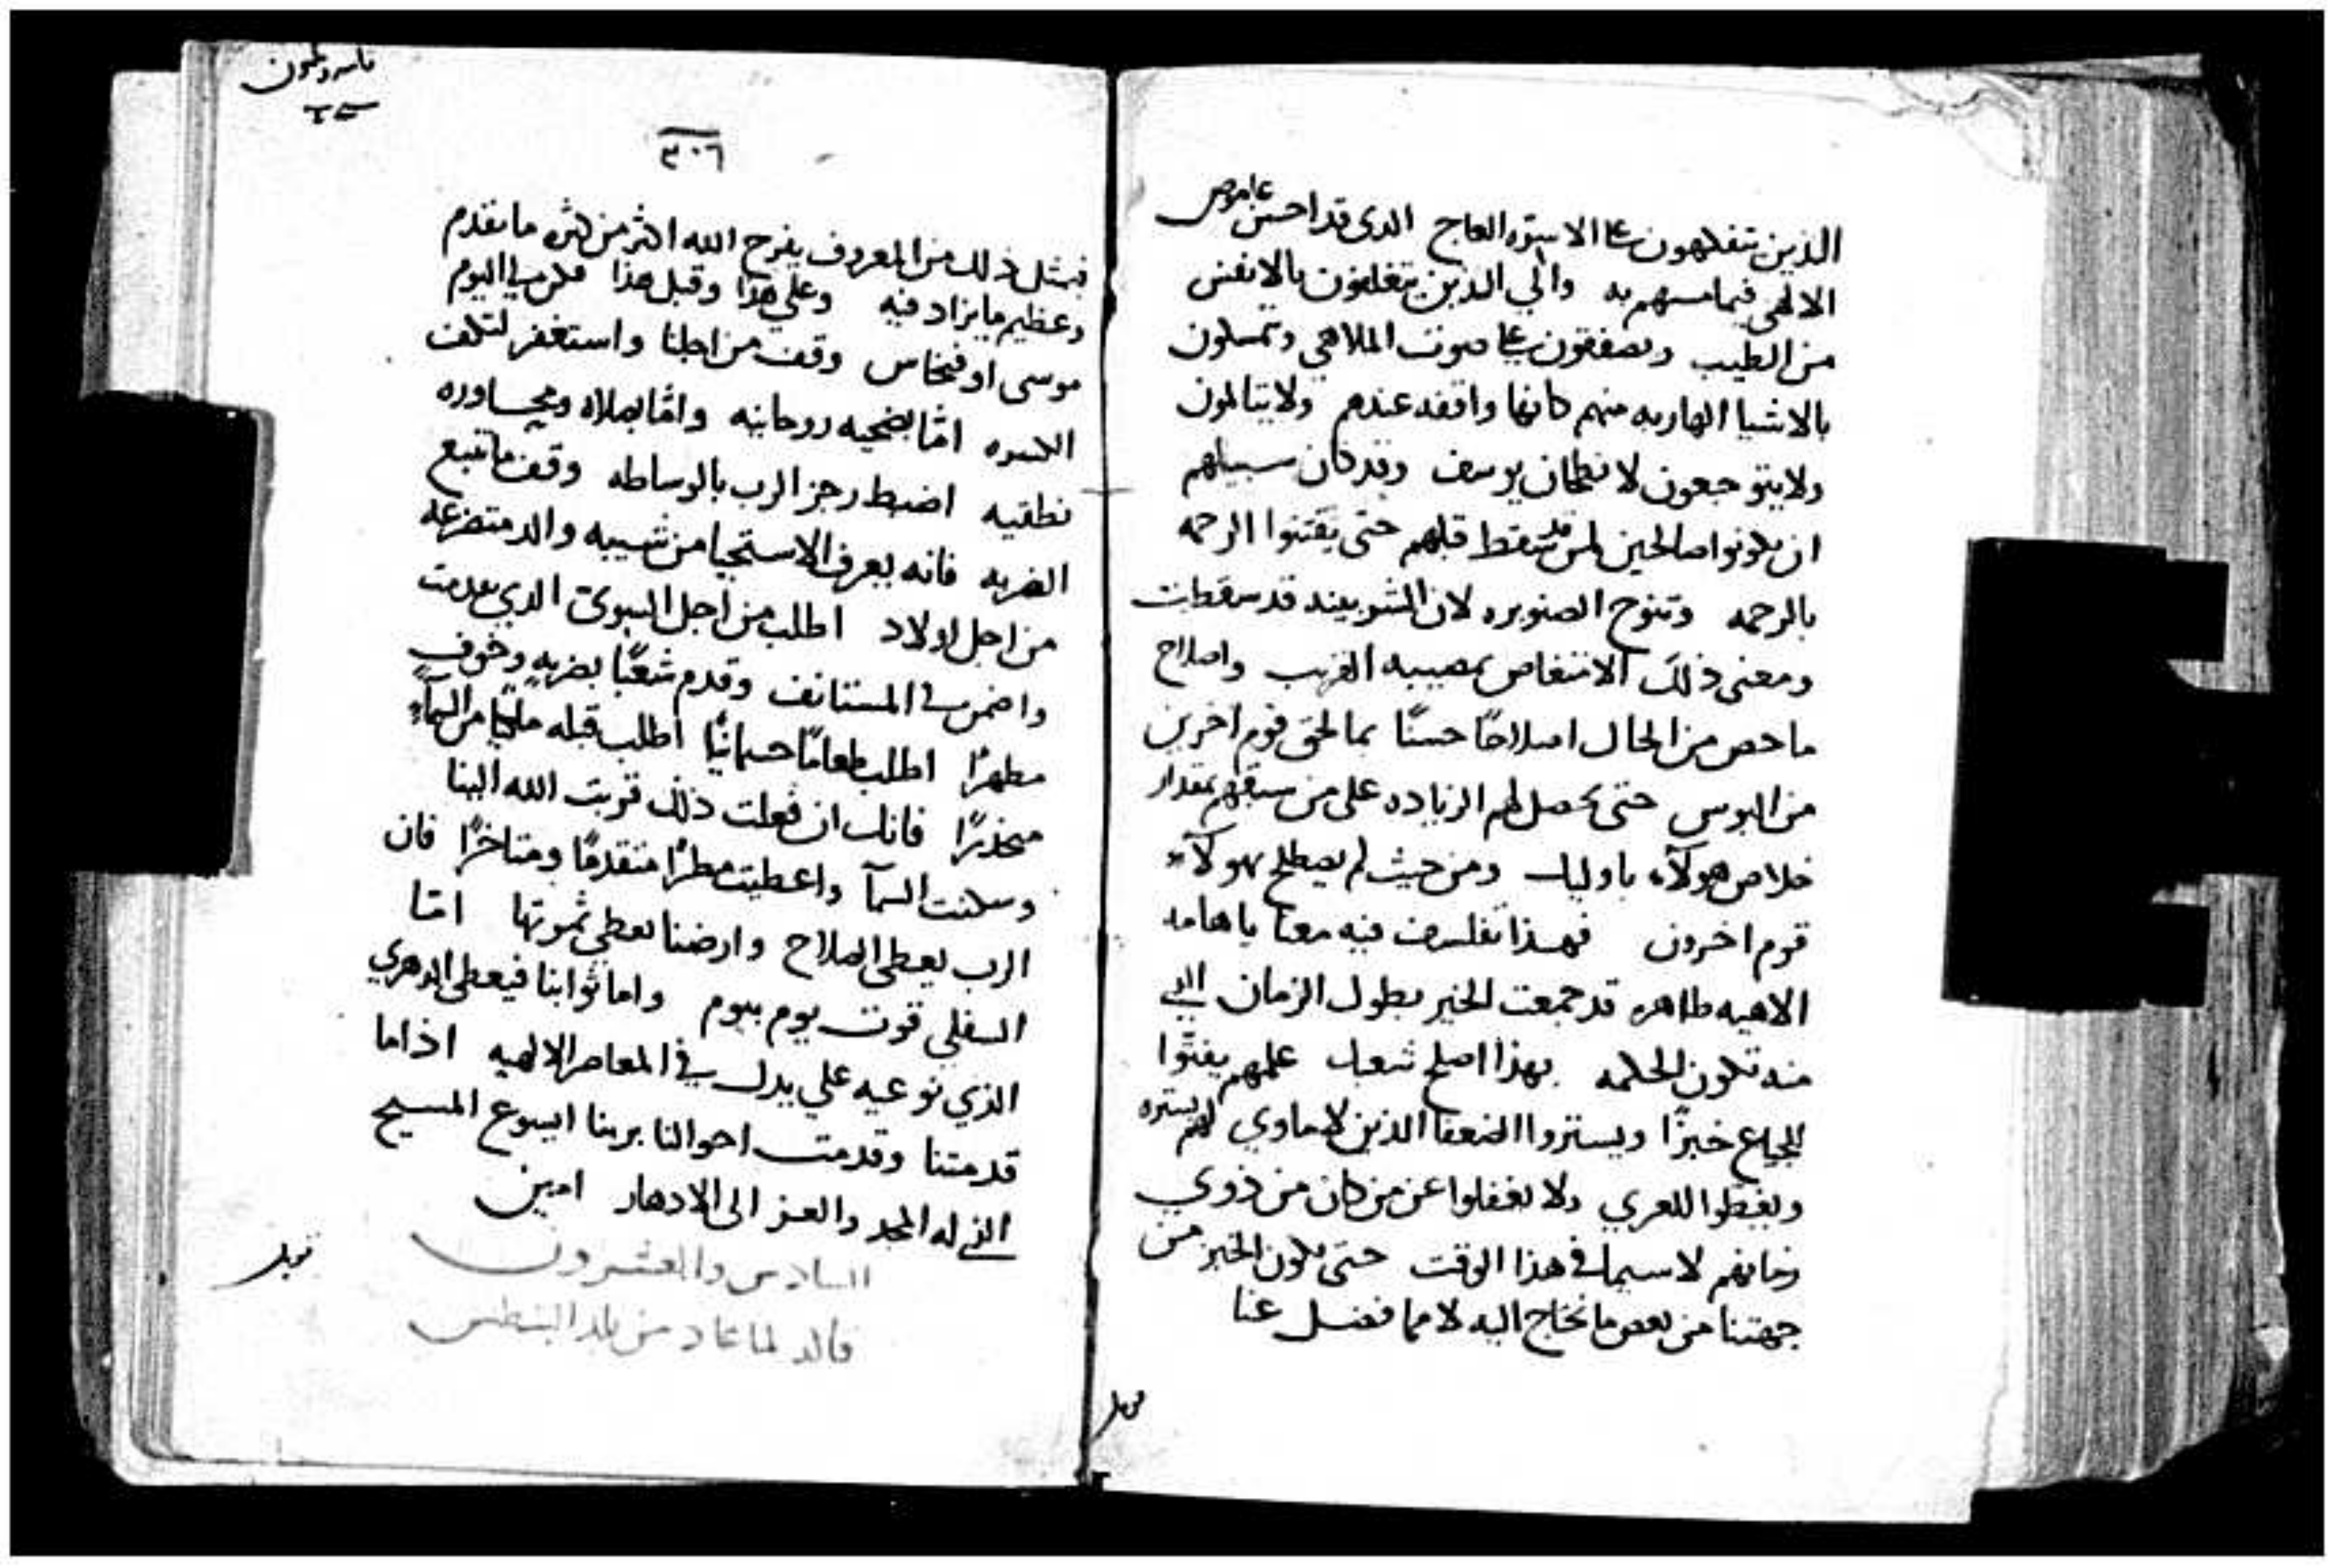 الذين يتفكهون علي الاسره العاج الدي قد احسن عاموص
الالهي فيما سهم به والي الذين يتغلفون بالانفس
من الطيب ويصفقون علي صوت الملاهي ويتمسكون
بالاشيا الهاربه منهم كانها واقفه عندهم ولا يتالمون
ولا يتوجعون لانطحان يوسف وقد كان سبيلهم
ان يكونوا صالحين لمن قد سقط قبلهم حتى يقتنوا الرحمه
بالرحمه وتنوح الصنوبره لان الشربينه قد سقطت
ومعنى ذلك الاتعاض بمصيبه القريب واصلاح
ما حص من الحال اصلاحًا حسنًا بما لحق قوم اخرين
من البوس حتى يحصل لهم الزياده على من سبقهم بمقدار
خلاص هولآء باوليك ومن حيث لم يصطلح بهولآء
قوم اخرون فهذا تفلسف فيه معنا يا هامه
الاهيه طاهره قد جمعت الخير بطول الزمان الدي
منه تكون الحكمه بهذا اصلح شعبك علمهم يفتّوا
للجياع خبزًا ويستروا الضعفا الذين لا ماوي لهم بستره
ويغطوا العري ولا يغفلوا عن من كان من ذوي
زمانهم لا سيما في هذا الوقت حتى يكون الخير من
جهتنا من بعض ما نحتاج اليه لا مما فضل عنا
٣٠٦
فبمثل ذلك من المعروف يفرح الله اكثر من كثره ما يقدم
وعظيم ما يزاد فيه وعلي هذا وقبل هذا فكن لي اليوم
موسى او فنحاس وقف من اجلنا واستغفر لتكف
الكسره امّا بضحيه روحانيه وامّا بصلاه ومحاوره
نطقيه اضبط رجز الرب بالوساطه وقف ما تتبع
الضربه فانه يعرف الاستحيا من شيبه والد متضرعه
من اجل اولاد اطلب من اجل السوى الدي تقدمت
واضمن في المستانف وقدم شعبًا بضربهٍ وخوف
مطهرًا اطلب طعامًا جسمانيًّا اطلب قبله ملكيًّا من السمآءِ
منحدرًا فانك ان فعلت ذلك قربت الله الينا
وسكنت السمآ واعطيت مطرًا متقدمًا ومتاخرًا فان
الرب يعطي الصلاح وارضنا تعطي ثمرتها امّا
السفلي قوت يوم بيوم واما ثوابنا فيعطي الدهري
الذي نوعيه على يدك في المعاصر الالهيه اذا ما
قدمتنا وقدمت احوالنا بربنا ايسوع المسيح
الذي له المجد والعز الى الادهار امين
السادس والعشرون
قاله لما عاد من بلد البنطس